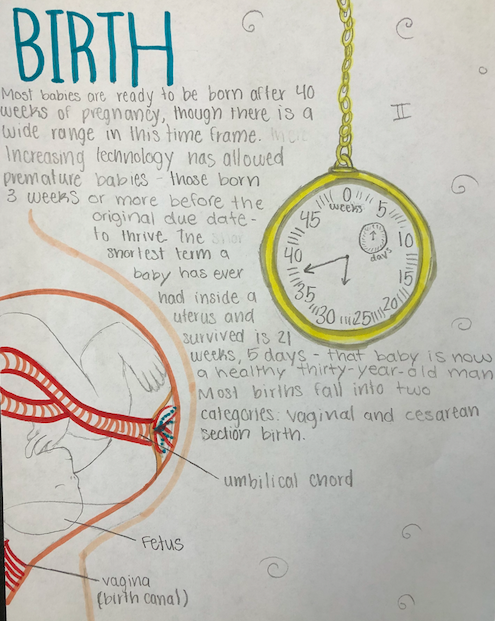 BIRTH
Most babies are ready to be born after 40
weeks of pregnancy, though there is a
wide range in this time frame.
Increasing technology has allowed
premature babies - those born
3 weeks or more before the
original due date -
to thrive. The
shortest term a
baby has ever
had inside a
uterus and
survived is 21
weeks, 5 days - that baby is now
a healthy thirty-year-old man
Most births fall into two
categories: vaginal and cesarean
section birth.
II
0
weeks
5
10
15
20
25
30
35
40
45
days
umbilical chord
Fetus
vagina
(birth canal)